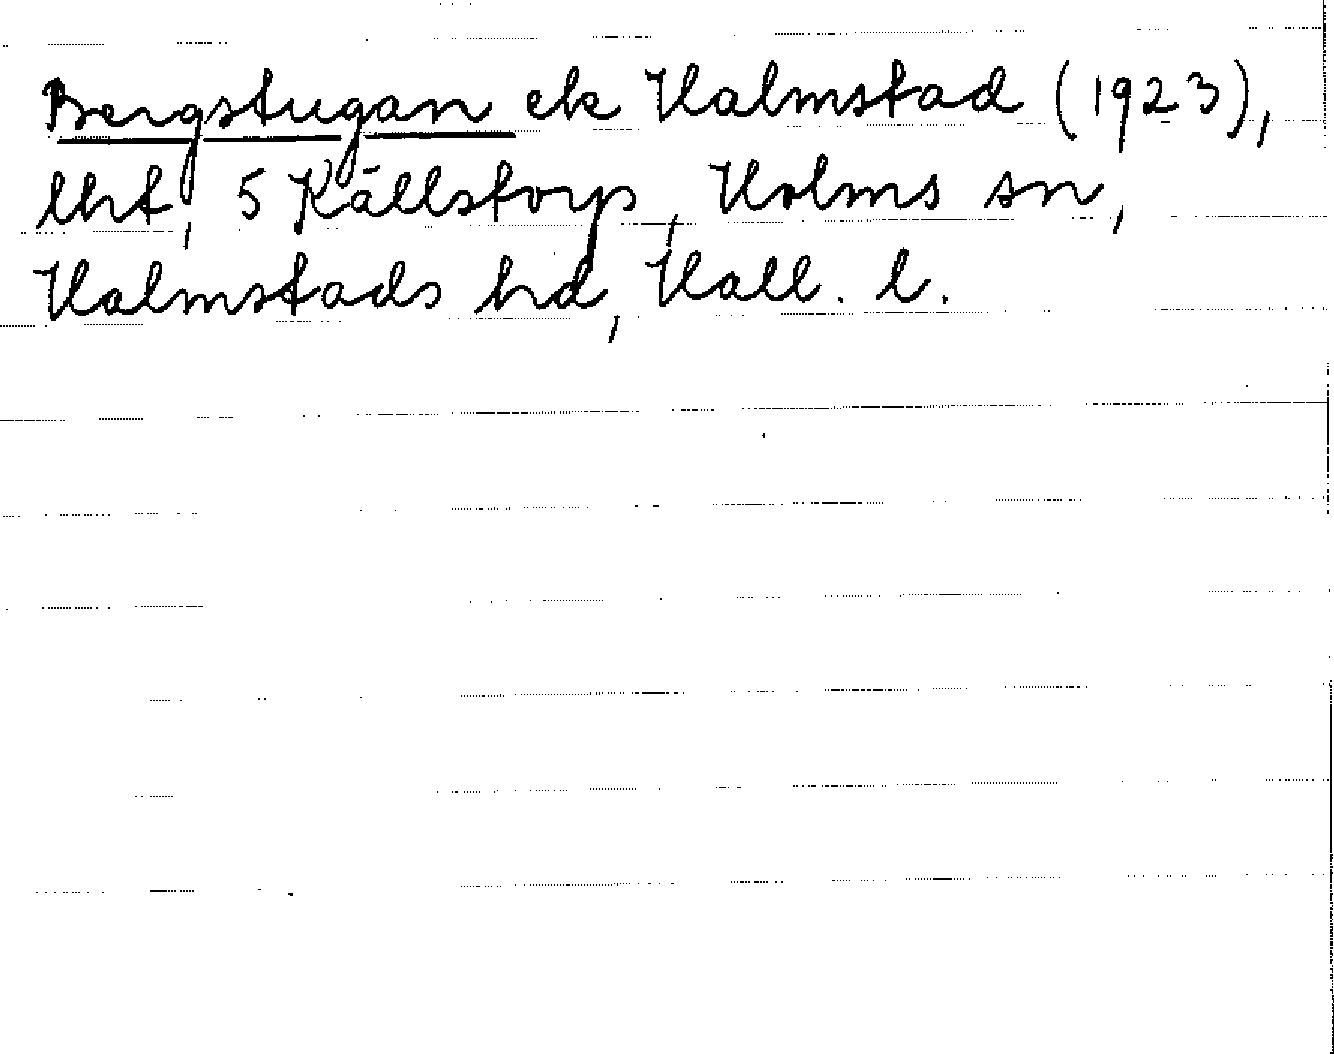 Bergstugan ek Halmstad (1923),
lht, 5 Källstorp, Holms sn,
Halmstads hd, Hall. l.